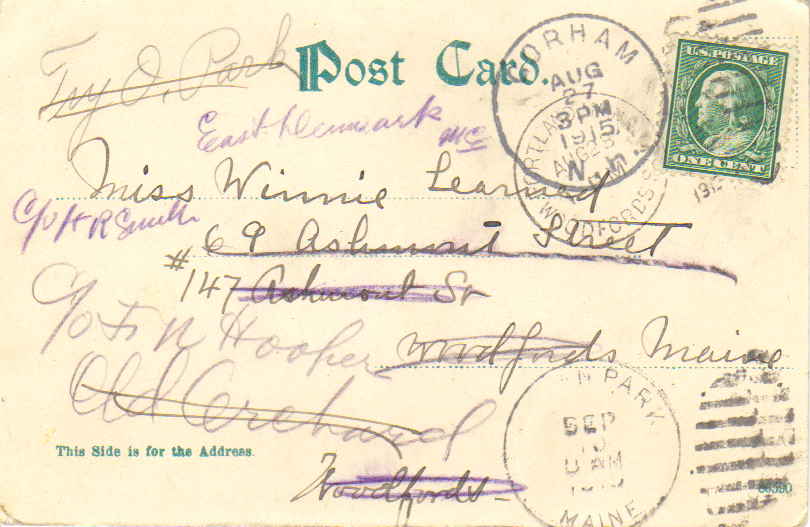 Try O. Park
Post Card.
East Denmark Me
Miss Winnie Learned
c/o H R Smith
69 Ashmont Street
#147 Ashmont St
c/o F N Hooper
Woodfords Maine
Old Orchard
This Side is for the Address.
Woodfords
GORHAM
AUG
27
3 PM
1915
N.H.
PORTLAND, MAINE
AUG
WOODFORDS
U.S. POSTAGE
ONE CENT
N PARK
SEP
AM
MAINE